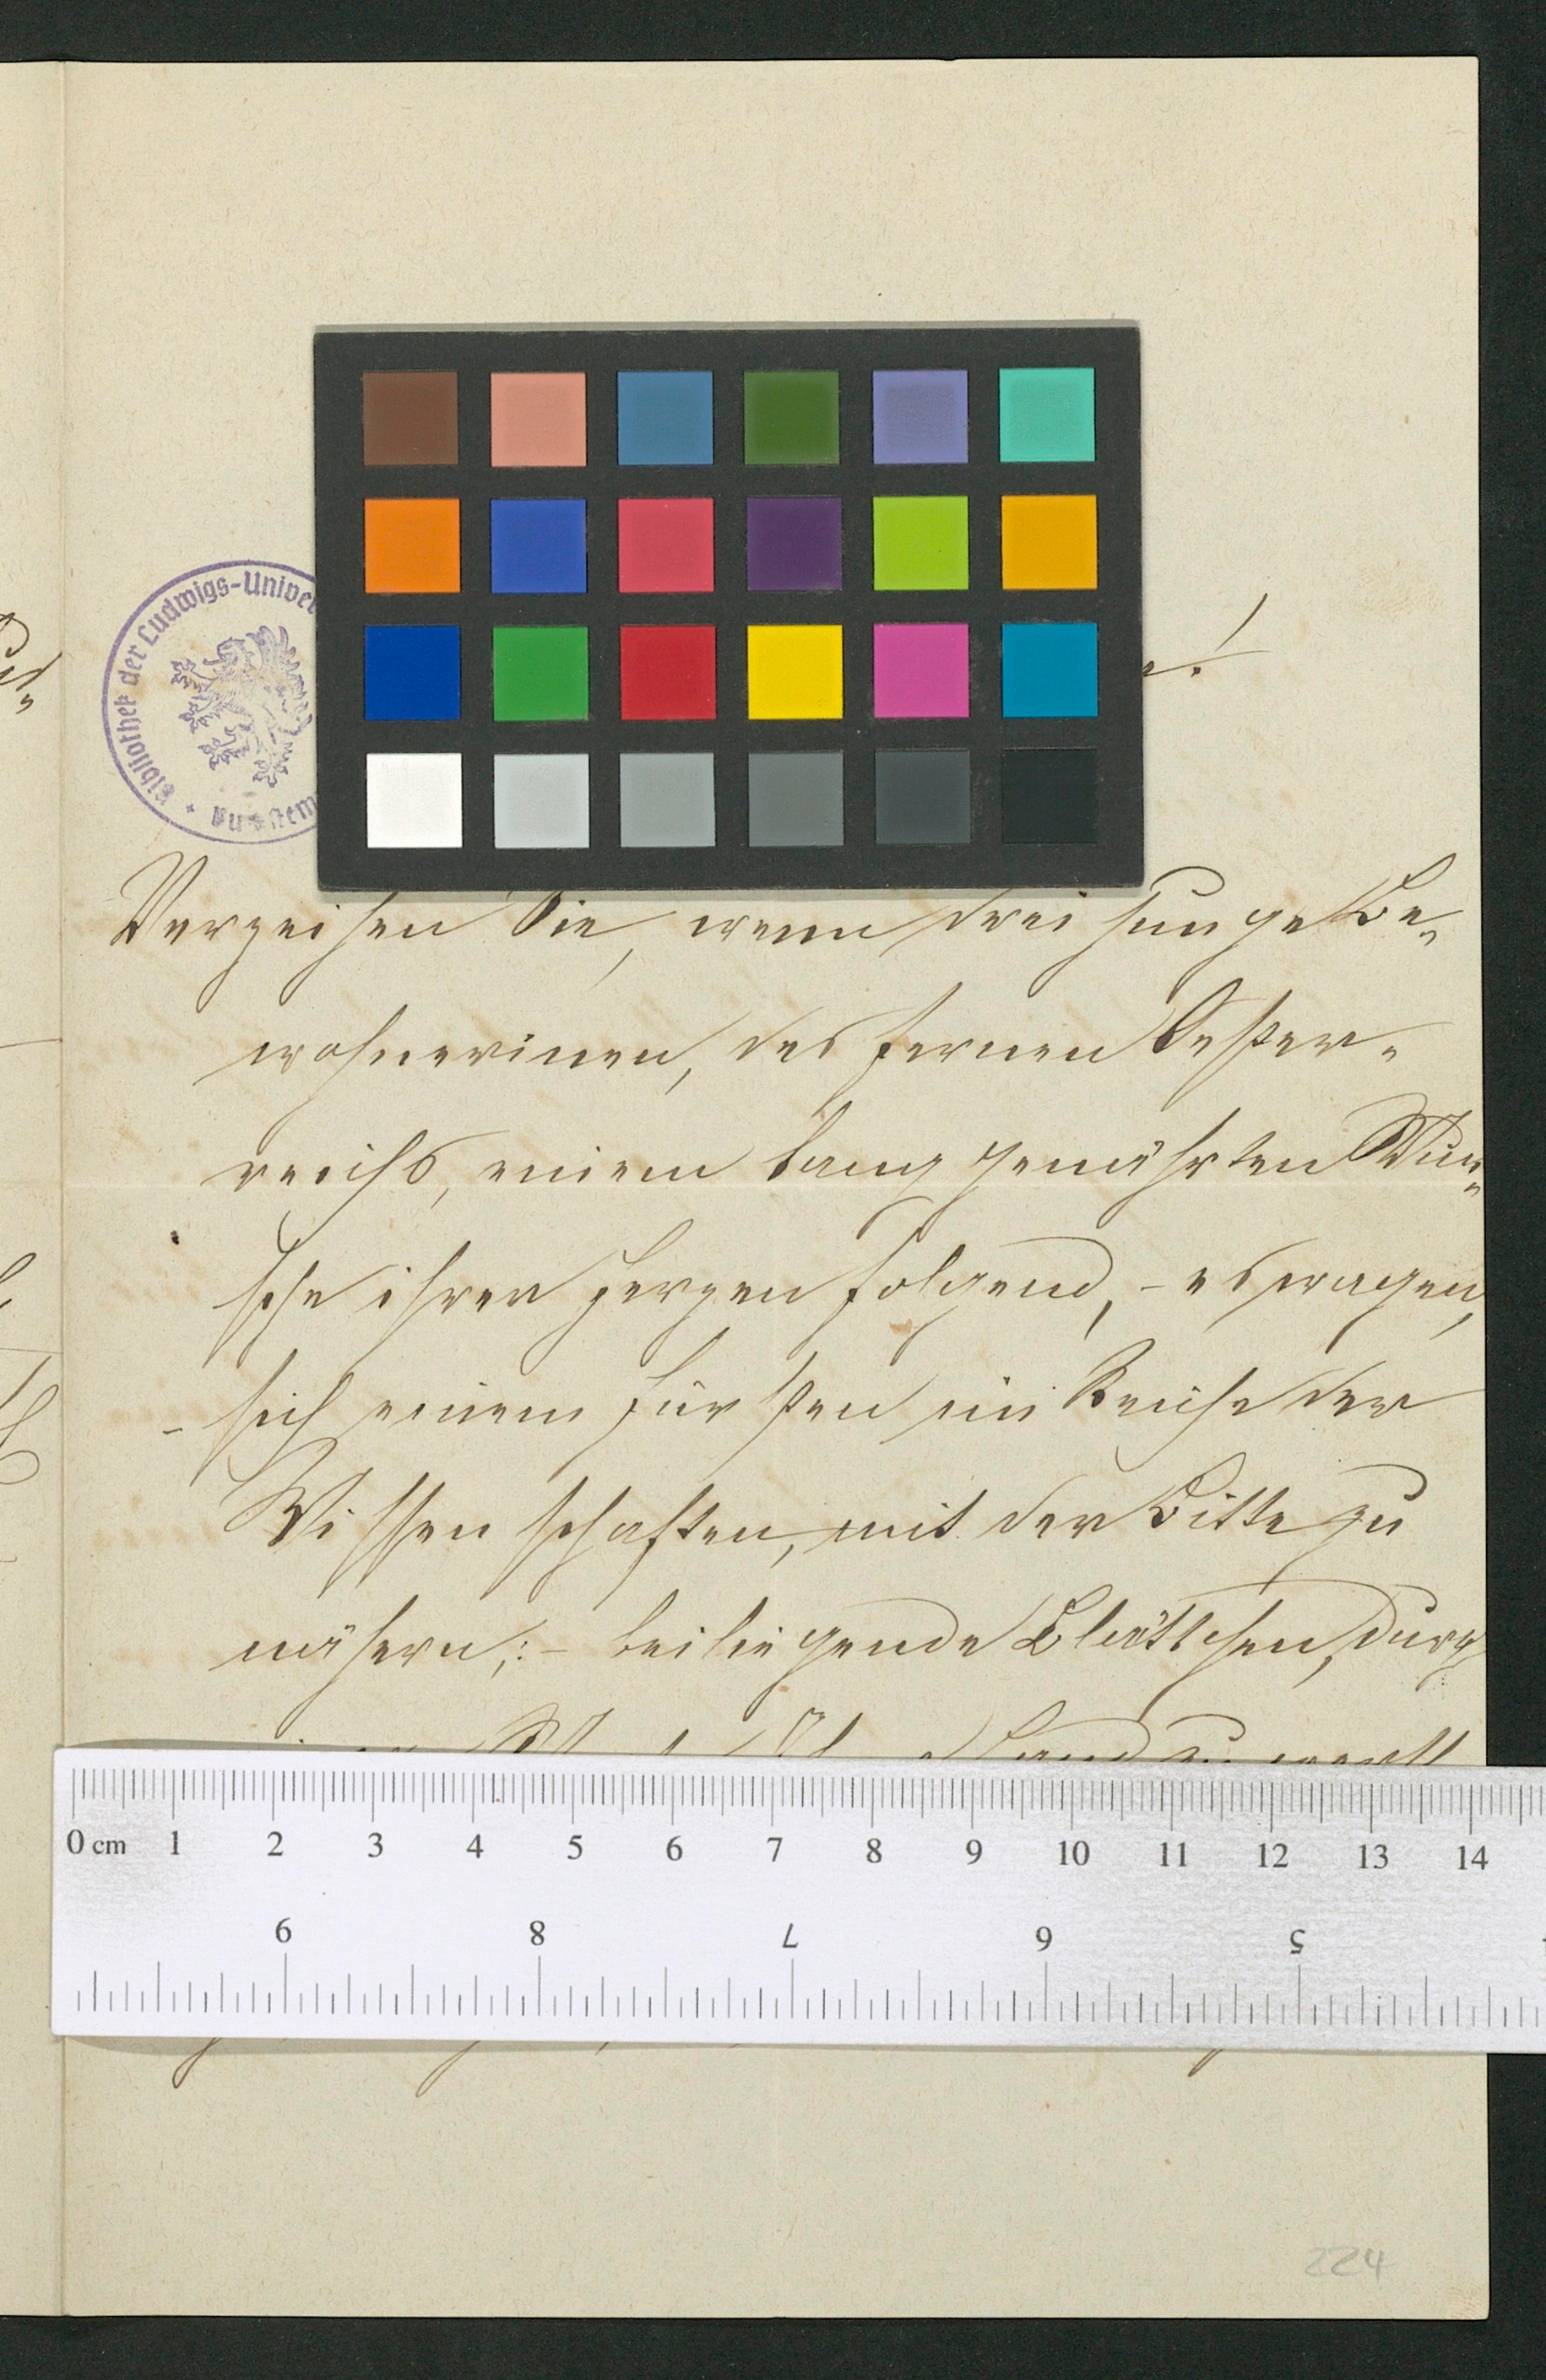 Bibliothek der Ludwigs-Univer
Verzeihen Sie, wenn drei junge Be„
wohnerinen, des fernen Oester„
reichs, einem lang genährten Wun„
sche ihrer Herzen folgend, – es wagen,
– sich einem Fürsten im Reiche der
Wissenschaften, mit der Bitte zu
nähern,: – beiliegende Blättchen, durch
0 cm 1 2 3 4 5 6 7 8 9 10 11 12 13 14
9 8 7 6 5
224